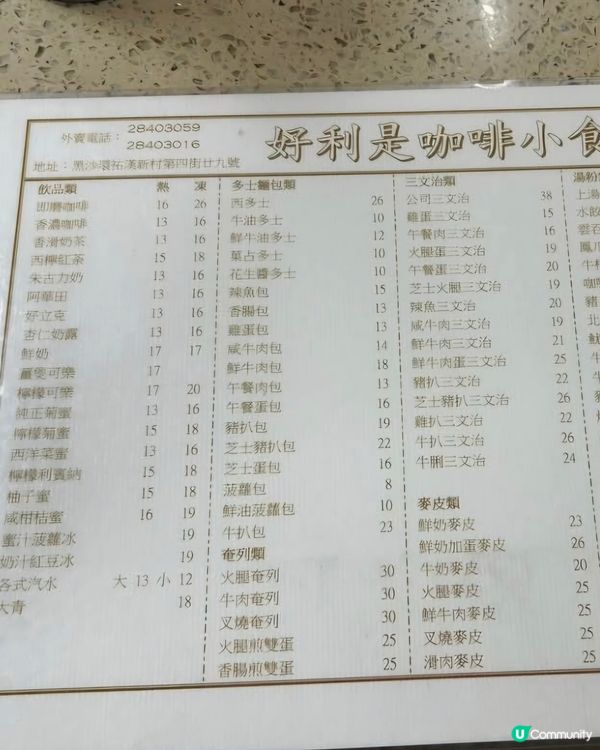 外賣電話： 28403059
28403016
好利是咖啡小食
地址：黑沙環祐漢新村第四街廿九號
飲品類 熱 凍
即磨咖啡 16 26
香濃咖啡 13 16
香滑奶茶 13 16
西檸紅茶 15 18
朱古力奶 13 16
阿華田 13 16
好立克 13 16
杏仁奶露 13 16
鮮奶 17 17
薑煲可樂 17
檸檬可樂 17 20
純正菊蜜 13 16
檸檬菊蜜 15 18
西洋菜蜜 13 16
檸檬利賓納 15 18
柚子蜜 15 18
咸柑桔蜜 16 19
蜜汁菠蘿冰 19
奶汁紅豆冰 19
各式汽水 大 13 小 12
大青 18
多士麵包類
西多士 26
牛油多士 10
鮮牛油多士 12
菓占多士 10
花生醬多士 10
辣魚包 15
香腸包 13
雞蛋包 13
咸牛肉包 14
鮮牛肉包 18
午餐肉包 13
午餐蛋包 16
豬扒包 18
芝士豬扒包 22
芝士蛋包 16
菠蘿包 8
鮮油菠蘿包 10
牛扒包 23
奄列類
火腿奄列 30
牛肉奄列 30
叉燒奄列 30
火腿煎雙蛋 25
香腸煎雙蛋 25
三文治類
公司三文治 38
雞蛋三文治 15
午餐肉三文治 16
火腿蛋三文治 19
午餐蛋三文治 20
芝士火腿三文治 19
辣魚三文治 20
咸牛肉三文治 19
鮮牛肉三文治 21
鮮牛肉蛋三文治 25
豬扒三文治 22
芝士豬扒三文治 26
雞扒三文治 22
牛扒三文治 26
牛脷三文治 24
麥皮類
鮮奶麥皮 23
鮮奶加蛋麥皮 26
牛奶麥皮 20
火腿麥皮 25
鮮牛肉麥皮 25
叉燒麥皮 25
滑肉麥皮 25
湯粉
上湯
水餃
雲吞
U Community